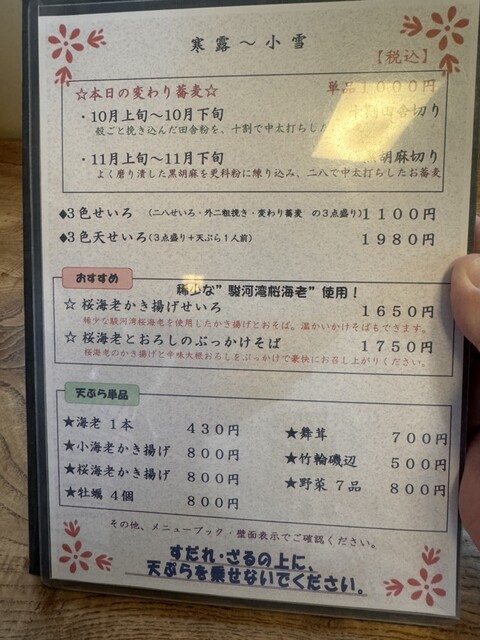 寒露～小雪
【税込】
☆本日の変わり蕎麦☆ 単品1000円
・10月上旬～10月下旬 十割田舎切り
殻ごと挽き込んだ田舎粉を、十割で中太打ちし
・11月上旬～11月下旬 黒胡麻切り
よく磨り潰した黒胡麻を更科粉に練り込み、二八で中太打ちしたお蕎麦
◆3色せいろ (二八せいろ・外二粗挽き・変わり蕎麦 の3点盛り) 1100円
◆3色天せいろ(3点盛り+天ぷら1人前) 1980円
おすすめ
稀少な”駿河湾桜海老”使用！
☆ 桜海老かき揚げせいろ 1650円
稀少な駿河湾桜海老を使用したかき揚げとおそば。温かいかけそばもできます。
☆ 桜海老とおろしのぶっかけそば 1750円
桜海老のかき揚げと辛味大根おろしをぶっかけで豪快にお召し上がりください。
天ぷら単品
★海老 1本 430円
★小海老かき揚げ 800円
★桜海老かき揚げ 800円
★牡蠣 4個 800円
★舞茸 700円
★竹輪磯辺 500円
★野菜 7品 800円
その他、メニューブック・壁面表示でご確認ください。
すだれ・ざるの上に、
天ぷらを乗せないでください。